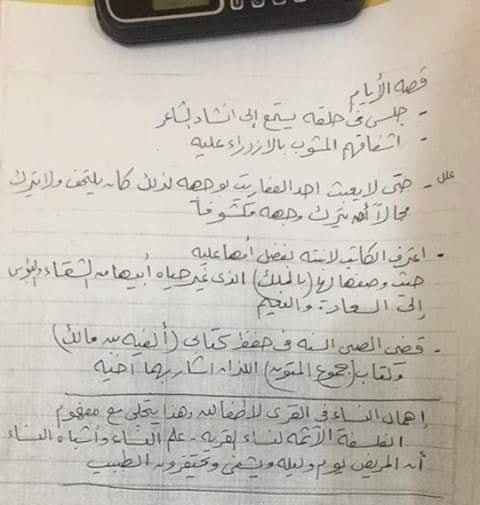 قصه الأيام
- جلس فى حلقه يستمع إلى انشاد الشاعر
- اشفاقهم المشوب بالازدراء عليه
علل - حتى لا يعبث احد العفاريت بوجهه لذلك كان يلتحف ولا يترك
مجالاً أن يترك وجهه مكشوفاً
- اعترف الكاتب لابنته بفضل أمها عليه
حيث وصفها لها (بالملك) الذى غير حياه أبيها من الشقاء والبؤس
إلى السعادة والنعيم
- قضى الصبى السنه فى حفظ كتابى (ألفيه بن مالك)
وكتاب (مجموع المتون) اللذان اشار بهما أخيه
إهمال النساء فى القرى لأطفالهن وهذا يتجلى مع مفهوم
الفلسفة الآثمه لنساء القريه - علم النساء وأشباه النساء
أن المريض يوم وليله ويشفى ويحتقرون الطبيب